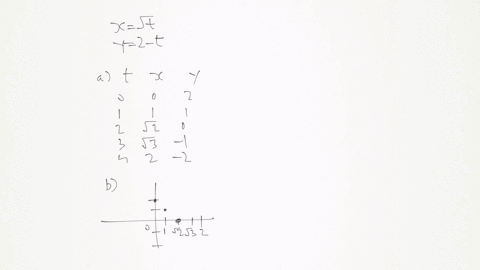 x=√t
y=2-t
a) t x y
0 0 2
1 1 1
2 √2 0
3 √3 -1
4 2 -2
b)
0 1 √2 √3 2